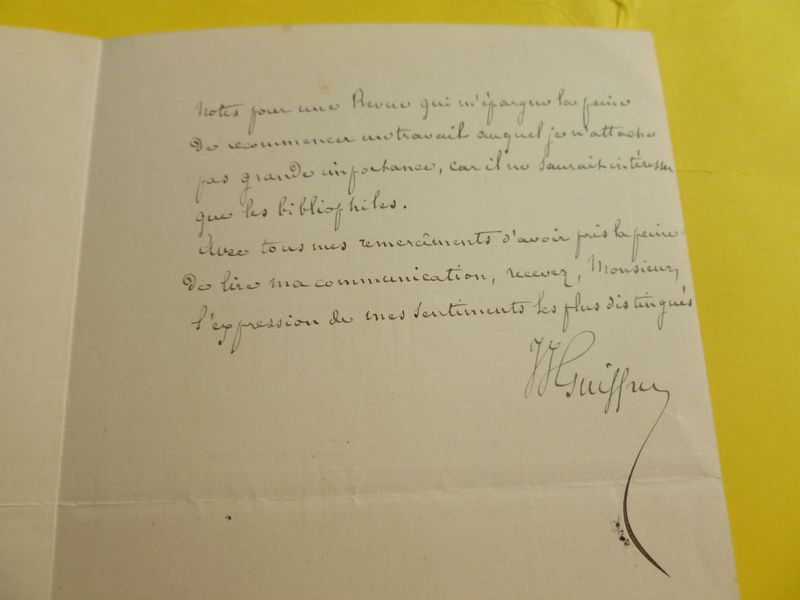 Notes pour une Revue qui m'épargne la peine
De recommencer un travail auquel je n'attache
pas grande importance, car il ne saurait intéresser
que les bibliophiles.
Avec tous mes remercîments d'avoir pris la peine
De lire ma communication, recevez, Monsieur,
l'expression de mes sentiments les plus distingués
JJ Guiffrey